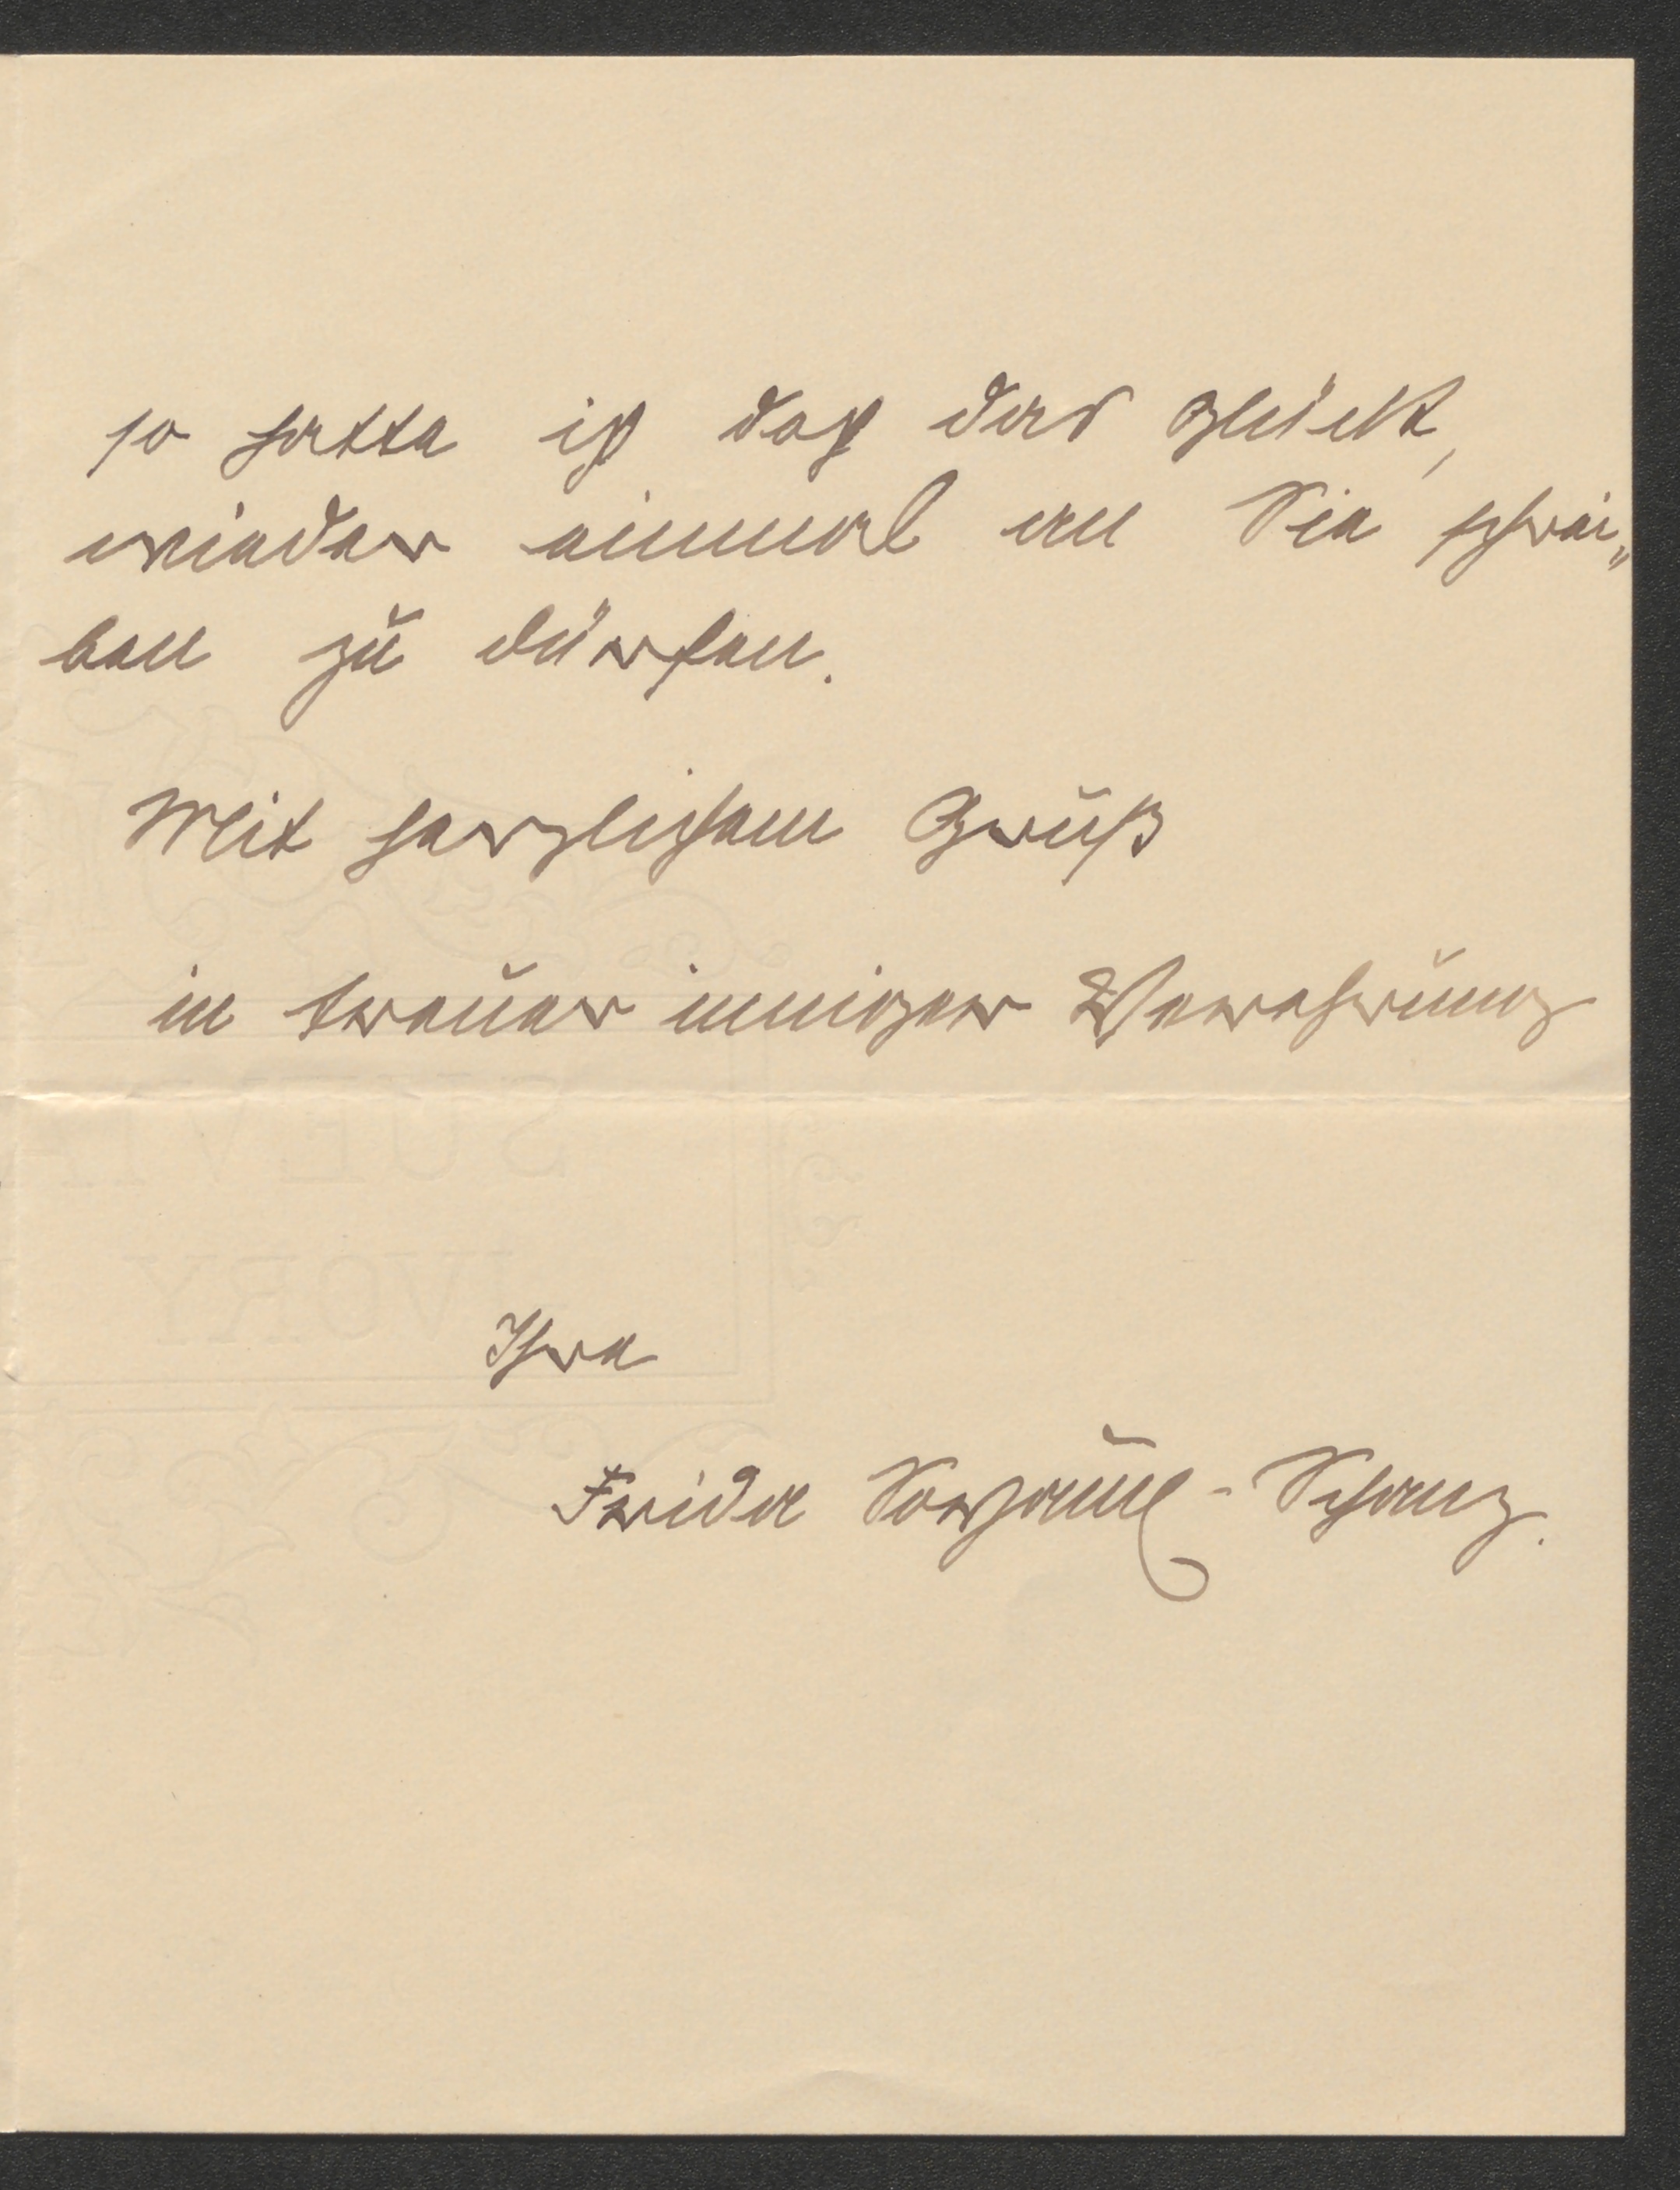 so hatte ich doch das Glück,
wieder einmal an Sie schrei„
ben zu dürfen.
Mit herzlichem Gruß
in treuer inniger Verehrung
Ihre
Frida Soyaux-Schanz.
SUEVIA
IVORY